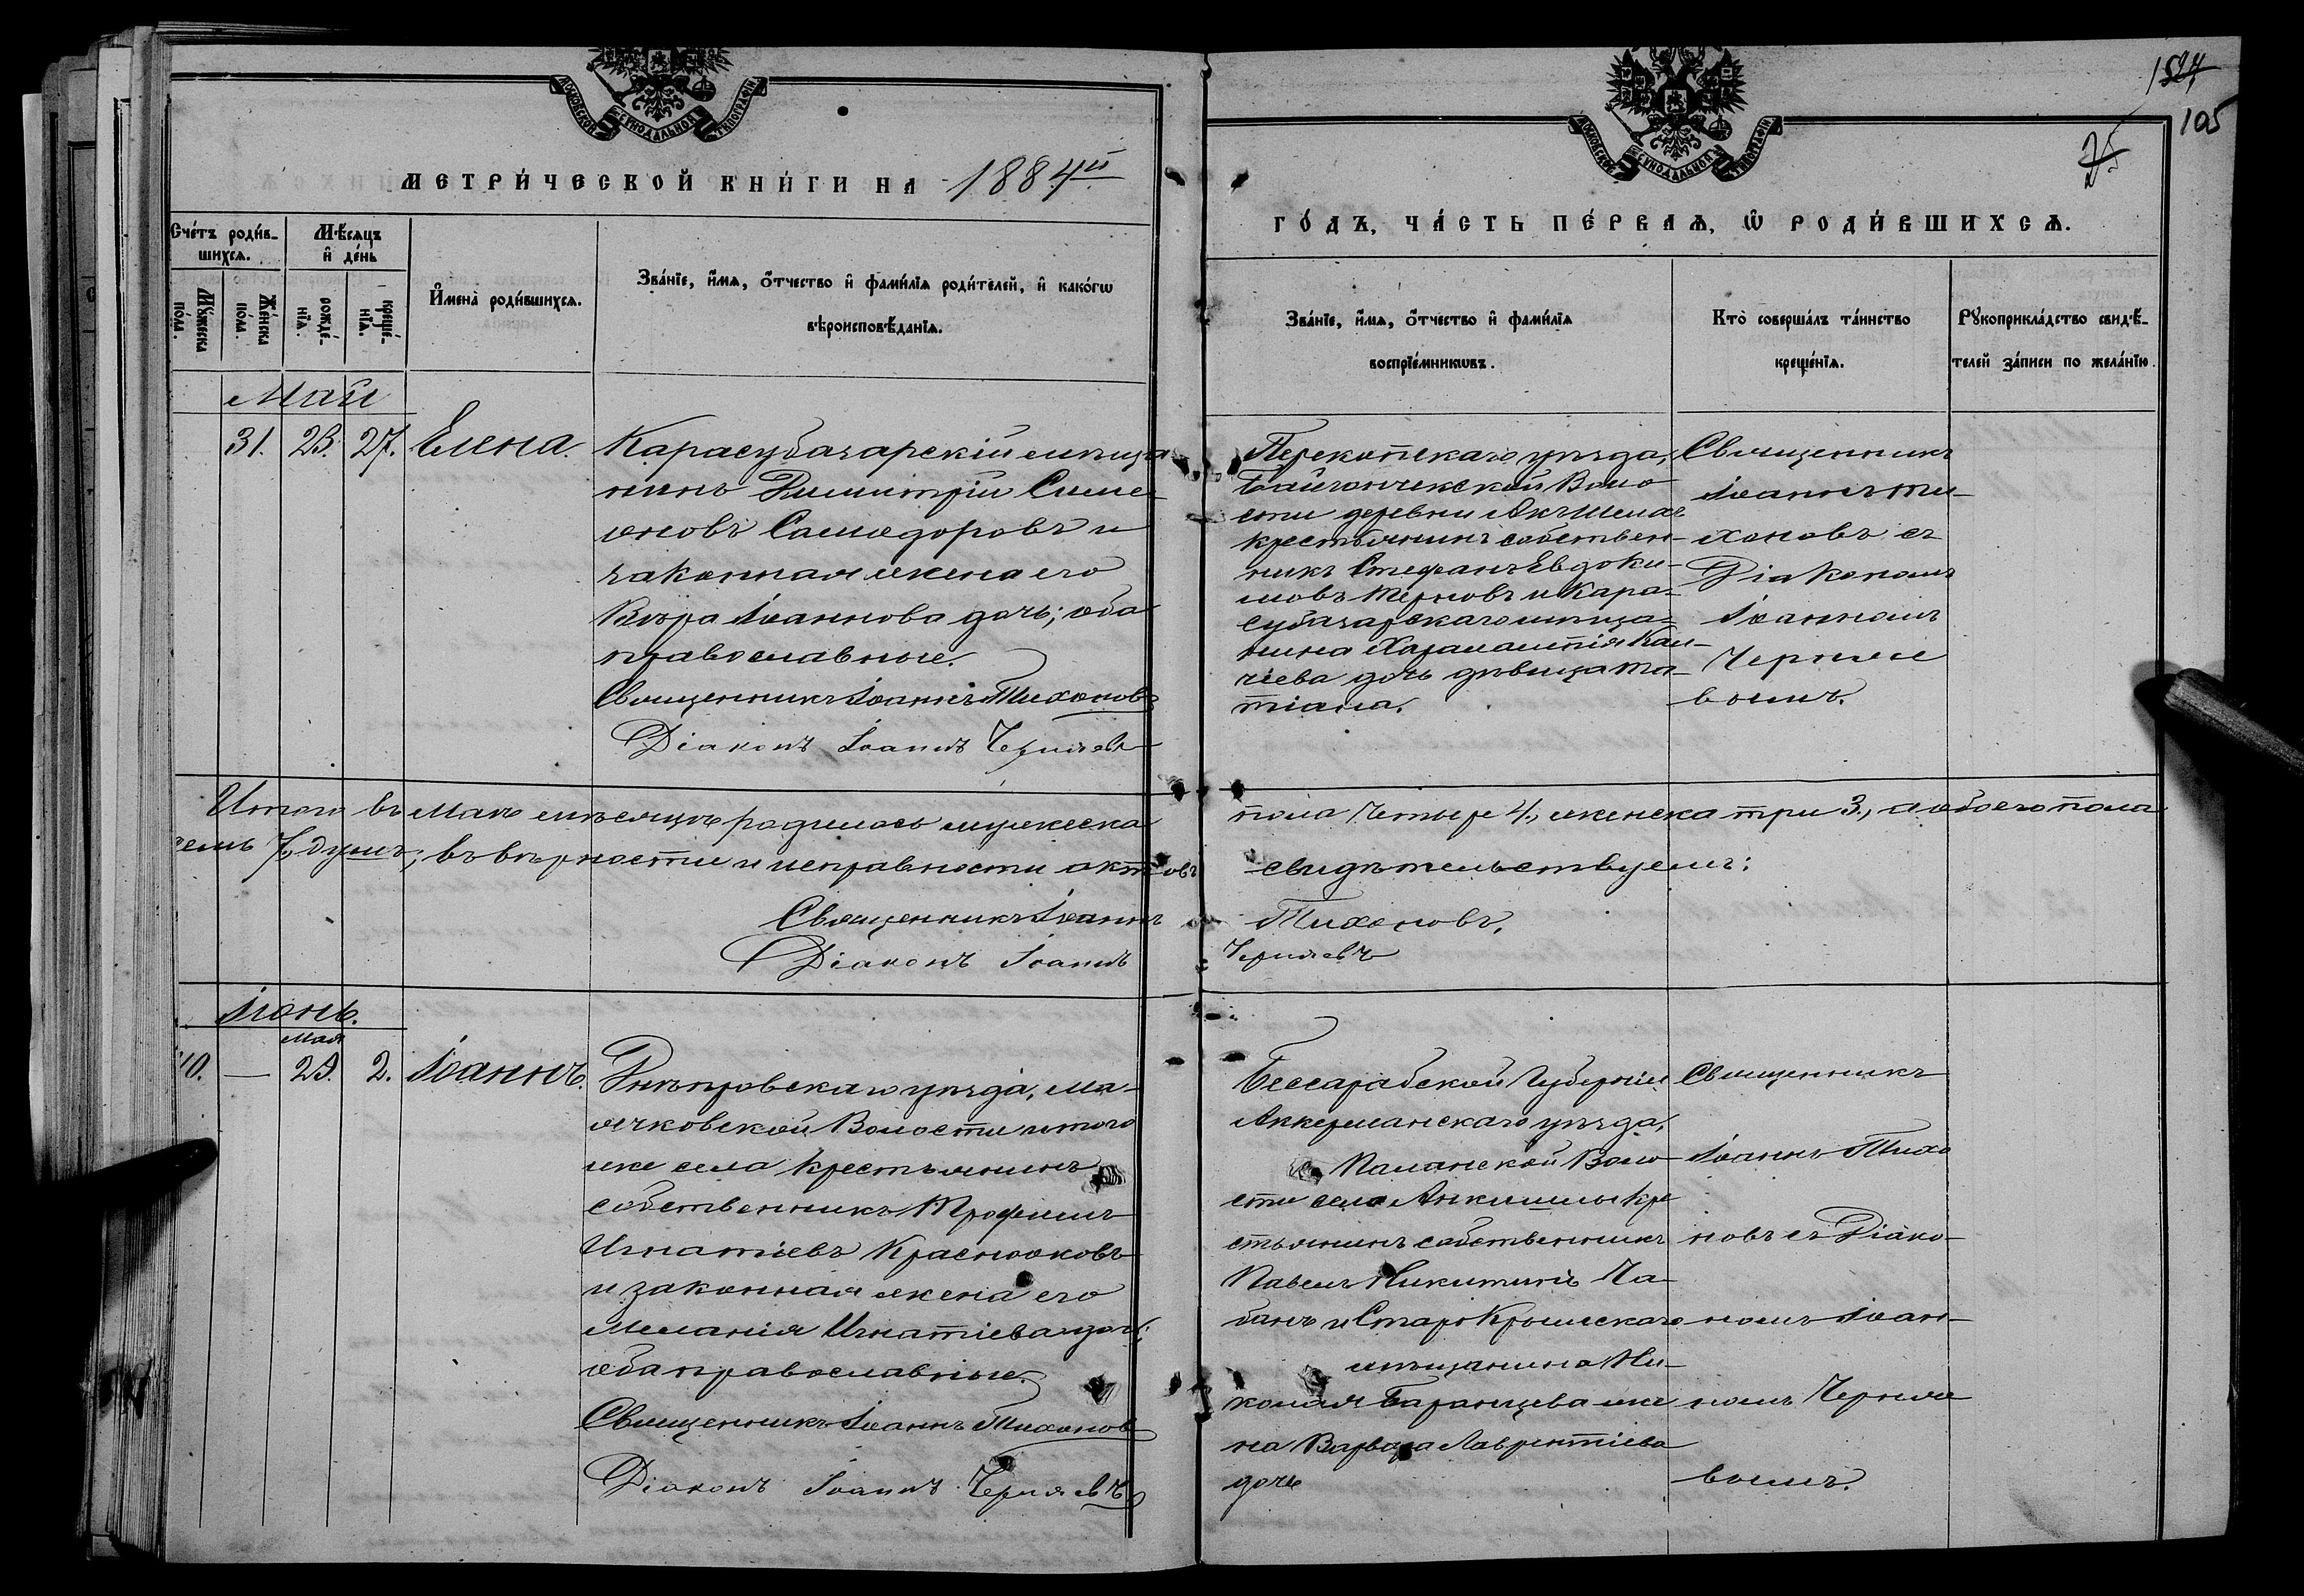 МОСКОВСКОЙ СѴНОДАЛЬНОЙ ТИПОГРАФІИ
МЕТРИ́ЧЕСКОЙ КНИ́ГИ НА 1884й
Сче́тъ роди́в-
шихся.
Мѣ́сяцъ
и҆ де́нь
Мꙋ́жеска
по́ла.
Же́нска
по́ла.
рожде́-
нїѧ.
креще́-
нїѧ.
И҆мена̀ роди́вшихсѧ.
Зва́нїе, и҆́мѧ, ѻ҆́тчество и҆ фами́лїѧ роди́телей, и҆ како́гѡ
вѣроисповѣ́данїѧ.
Май
31. 23. 27. Елена.
Карасубазарскій мѣща
нинъ Димитрій Симе
оновъ Самодоровъ и
законная жена его
Вѣра Іоаннова дочь; оба
православные.
Священникъ Іоаннъ Тихоновъ
Діаконъ Іоаннъ Черняевъ
Итого въ маѣ мѣсяцѣ родилось мужеска
семь 7, душъ; въ вѣрности и исправности актовъ
Священникъ Іоаннъ
Діаконъ Іоаннъ
Іюнь.
мая
40. — 29. 2. Іоаннъ.
Днѣпровскаго уѣзда, Ма-
ячковской Волости и того
же села крестьянинъ
собственникъ Трофимъ
Игнатіевъ Краснооковъ
и законная жена его
Меланія Игнатіева дочь;
оба православные.
Священникъ Іоаннъ Тихоновъ
Діаконъ Іоаннъ Черняевъ
105
75
МОСКОВСКОЙ СѴНОДАЛЬНОЙ ТИПОГРАФІИ
ГО́ДЪ, ЧА́СТЬ ПЕ́РВАѦ, Ѡ҆ РОДИ́ВШИХСѦ.
Зва́нїе, и҆́мѧ, ѻ҆́тчество и҆ фами́лїѧ
воспрїе́мникѡвъ.
Кто̀ соверша́лъ та́инство
креще́нїѧ.
Рꙋкоприкла́дство свидѣ́-
телей за́писи по жела́нїю.
Перекопскаго уѣзда,
Байгончекской Воло
сти деревни Акъ Шемак
крестьянинъ собствен-
никъ Стефанъ Евдоки-
мовъ Терновъ и Кара-
субазарскаго мѣща-
нина Харалампія
дочь дѣвица Та-
тіана.
Священникъ
Іоаннъ Ти-
хоновъ съ
Діакономъ
Іоанномъ
Черняе
вымъ.
пола четыре 4, женска три 3, а обоего пола
свидѣтельствуемъ:
Тихоновъ,
Черняевъ
Бессарабской Губерніи
Аккерманскаго уѣзда,
Паланской Воло-
сти села Анкишлы кре
стьянинъ собственникъ
Павелъ Никитинъ Ча-
банъ и Старо Крымскаго
мѣщанина Ни-
колая Баранцева же
на Варвара Лаврентіева
дочь
Священникъ
Іоаннъ Тихо
новъ съ Діако-
номъ Іоан-
номъ Черняе
вымъ.